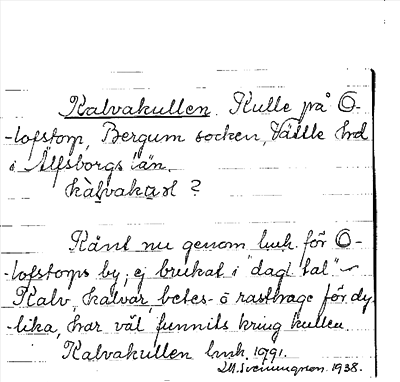 Kalvakullen. Kulle på O-
-lofstorp, Bergum socken, Vättle hrd
i Älfsborgs län.
kàlvakaɔl ?
Känt nu genom lmk. för O-
-lofstorps by, ej brukat i "dagl tal"
Kalv, kalvar, betes- o rasthage för dy-
-lika, har väl funnits kring kullen
Kalvakullen lmk. 1791.
Sveningson. 1938.